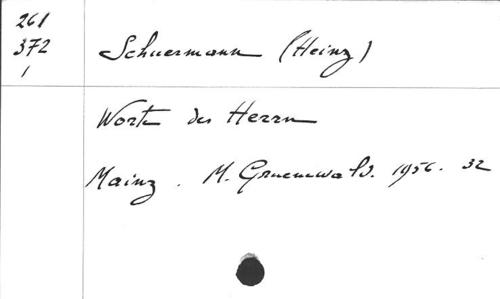 261
372
1
Schuermann (Heinz)
Worte des Herrn
Mainz. M. Gruenewald. 1956. 32